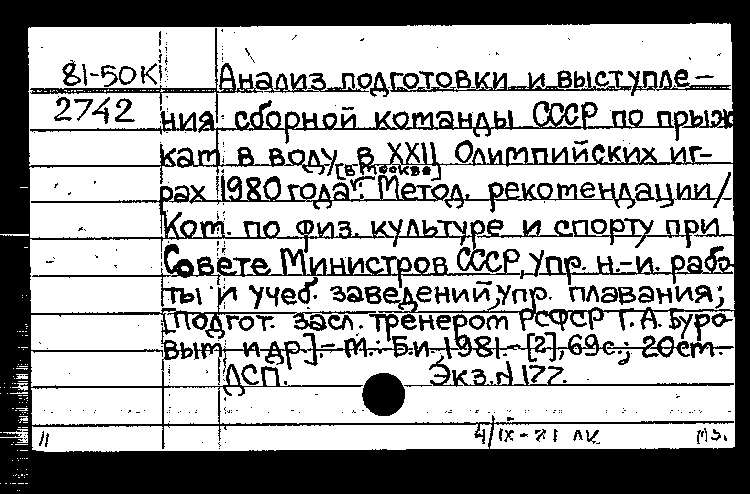 81-50К Анализ подготовки и выступле-
2742 ния сборной команды СССР по прыж
кам в воду в XXII Олимпийских иг-
[в Москве]
рах 1980 года: Метод. рекомендации/
Ком. по физ. культуре и спорту при
Совете Министров СССР, Упр. н.-и. рабо
ты и учеб. заведений, упр. плавания;
[Подгот. засл. тренером РСФСР Г.А. Буро
вым и др.].- М.: Б.и., 1981.- [2], 69 с.; 20 см.-
ДСП. Экз. N 177.
11 4/IX-81 ЛК МЗ.